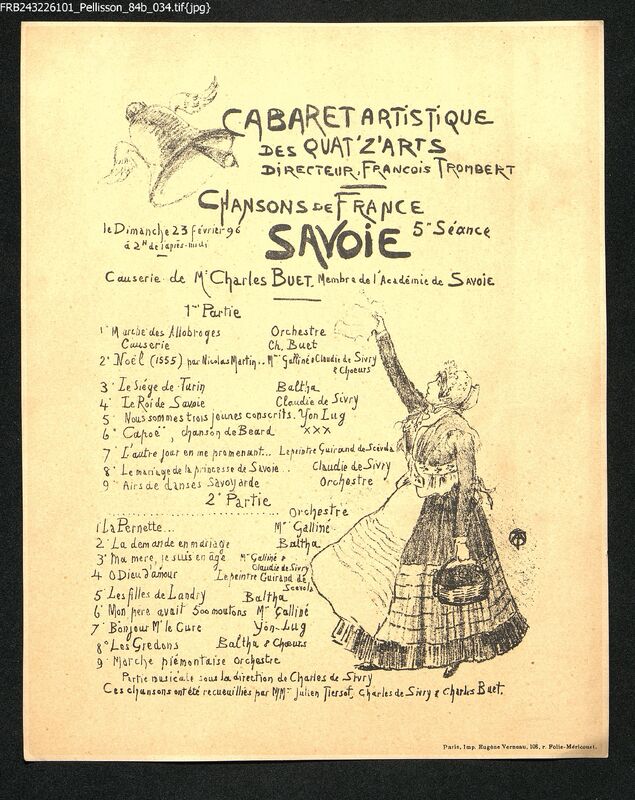 FRB243226101_Pellisson_84b_034.tif{jpg}
CABARET ARTISTIQUE
DES QUAT'Z'ARTS
DIRECTEUR, FRANCOIS TROMBERT
CHANSONS DE FRANCE
le Dimanche 23 février 96
à 2H de l'après-midi
SAVOIE 5me Séance
Causerie de Mr Charles BUET. Membre de l'Académie de SAVOIE
1re Partie
1° Marche des Allobroges Orchestre
Causerie Ch. Buet
2° Noël (1555) par Nicolas Martin.. Mme Galliné & Claudie de Sivry
& Choeurs
3° Le Siège de Turin Baltha
4° Le Roi de Savoie Claudie de Sivry
5° Nous sommes trois jeunes conscrits. Yon Lug
6° Capoë, chanson de Béard XXX
7° L'autre jour en me promenant... Le peintre Guirand de Scévola
8° Le mariage de la princesse de Savoie... Claudie de Sivry
9° Airs de danses Savoyarde Orchestre
2e Partie
Orchestre
1 La Pernette... Mme Galliné
2° La demande en mariage Baltha
3° Ma mere, je suis en âge Mme Galliné &
Claudie de Sivry
4 O Dieu d'amour Le peintre Guirand de
Scevola
5° Les filles de Landry Baltha
6° Mon pere avait 500 moutons Mme Galliné
7° Bonjour Mr le Cure Yon-Lug
8° Les Gredons Baltha & Chœurs
9° Marche piémontaise Orchestre
Partie musicale sous la direction de Charles de Sivry
Ces chansons ont été recueuilliés par MMrs Julien Tiersot, Charles de Sivry & Charles Buet.
Paris, Imp. Eugène Verneau, 108, r. Folie-Méricourt.